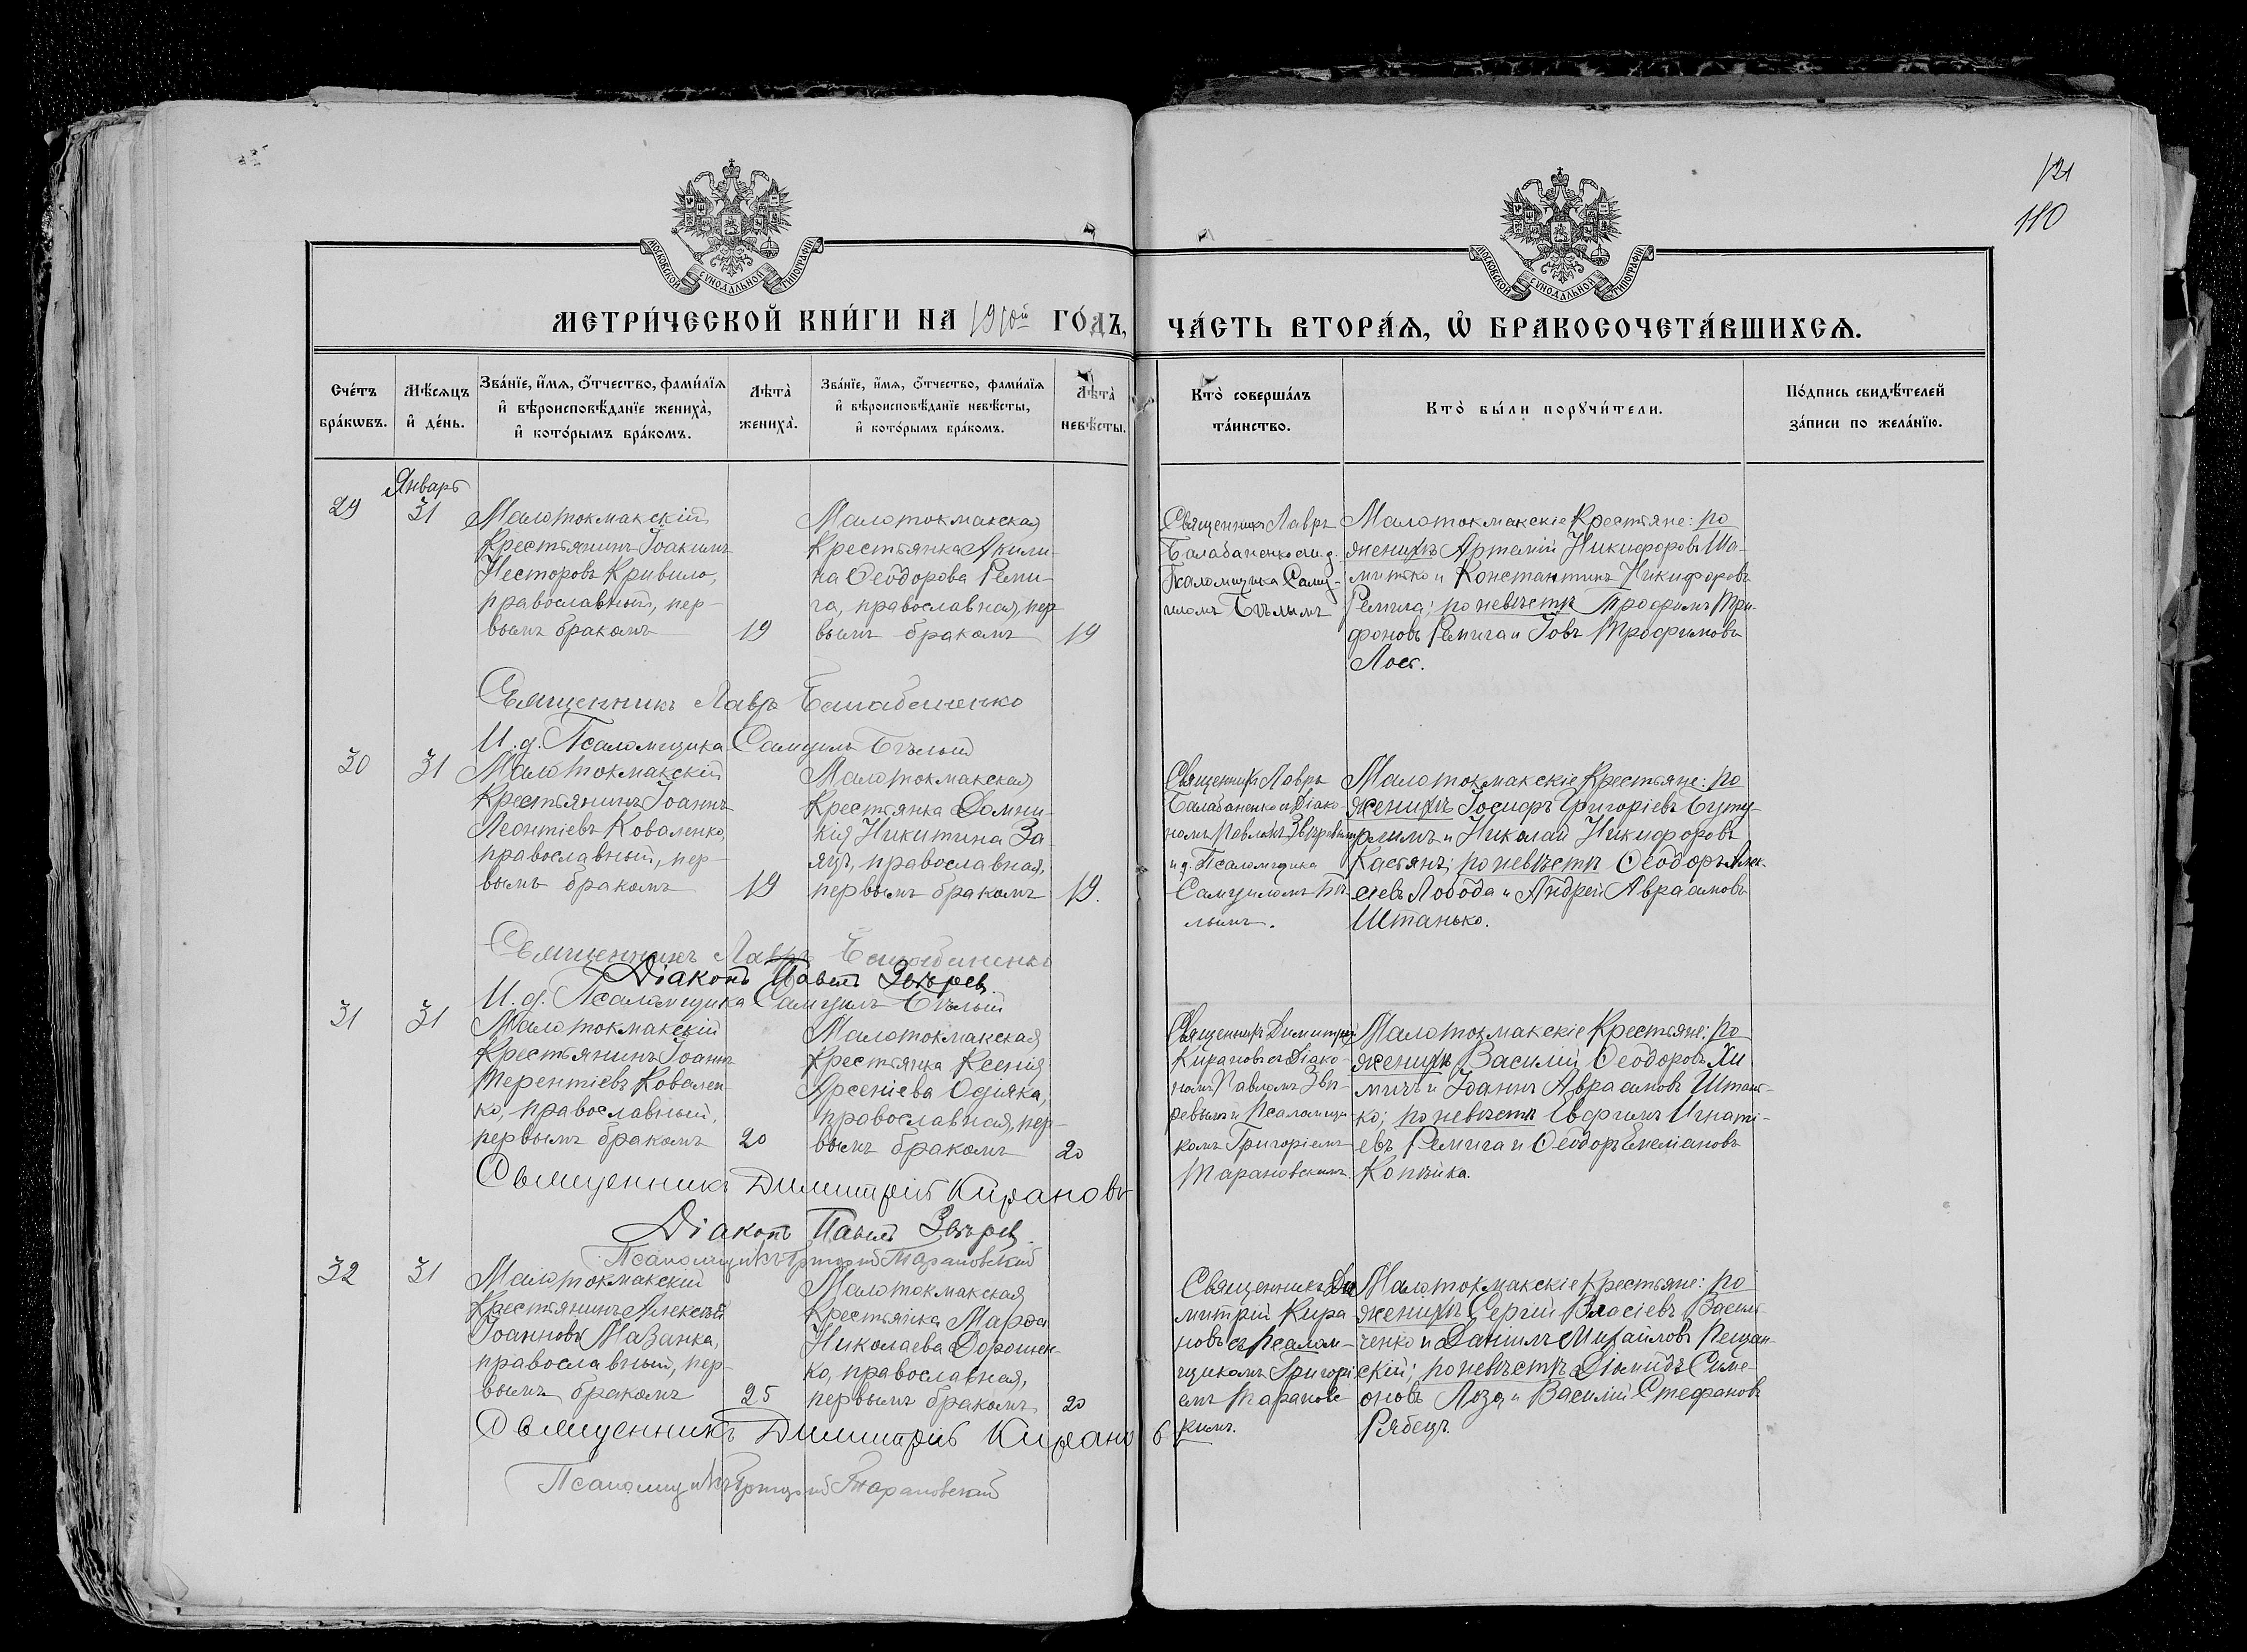 121
110
МОСКОВСКОЙ СѴНОДАЛЬНОЙ ТИПОГРАФІИ
МОСКОВСКОЙ СѴНОДАЛЬНОЙ ТИПОГРАФІИ
МЕТРИ́ЧЕСКОЙ КНИ́ГИ НА 1910й ГО́ДЪ, ЧА́СТЬ ВТОРА́Ѧ, Ѡ҆ БРАКОСОЧЕТА́ВШИХСѦ.
Сче́тъ бра́кωвъ.
Мѣ́сѧцъ и҆ де́нь.
Зва́нїе, и҆́мѧ, ѻ҆́тчество, фами́лїѧ
и҆ вѣроисповѣ́данїе жениха̀,
и҆ кото́рымъ бра́комъ.
Лѣта̀ жениха̀.
Зва́нїе, и҆́мѧ, ѻ҆́тчество, фами́лїѧ
и҆ вѣроисповѣ́данїе невѣ́сты,
и҆ кото́рымъ бра́комъ.
Лѣта̀ невѣ́сты.
Кто̀ соверша́лъ
та́инство.
Кто̀ бы́ли порꙋчи́тели.
По́дпись свидѣ́телей
за́писи по жела́нїю.
Январь
29
31
Малотокмакскій
крестьянинъ Іоакимъ
Несторовъ Кривило,
православный, пер-
вымъ бракомъ
19
Малотокмакская
крестьянка Акили-
на Ѳеодорова Реми-
га, православная, пер-
вымъ бракомъ
19
Священникъ Лавръ
Балабаненко съ и. д.
Псаломщика Саму-
иломъ Бѣлымъ
Малотокмакскіе крестьяне: по
женихѣ Артемій Никифоровъ Ша-
митько и Константинъ Никифоровъ
Ремига; по невѣстѣ Трофимъ Три-
фоновъ Ремига и Іовъ Трофимовъ
Лось.
Священникъ Лавръ Балабаненко
И. д. Псаломщика Самуилъ Бѣлый
30
31
Малотокмакскій
крестьянинъ Іоаннъ
Леонтіевъ Коваленко,
православный, пер-
вымъ бракомъ
19
Малотокмакская
крестьянка Домни-
кія Никитина За-
яцъ, православная,
первымъ бракомъ
19.
Священникъ Лавръ
Балабаненко съ Діако-
номъ Павломъ Звѣревымъ
и д. Псаломщика
Самуиломъ Бѣ-
лымъ.
Малотокмакскіе крестьяне: по
женихѣ Іосифъ Григоріевъ
и Николай Никифоровъ
Касьянъ; по невѣстѣ Ѳеодоръ Алек-
сіевъ Лобода и Андрей Авраамовъ
Штанько.
Священникъ Лавръ Балабаненко
Діаконъ Павелъ Звѣревъ.
И. д. Псаломщика Самуилъ Бѣлый
31
31
Малотокмакскій
крестьянинъ Іоаннъ
Терентіевъ Ковален-
ко, православный,
первымъ бракомъ
20
Малотокмакская
крестьянка Ксенія
Арсеніева Одняка,
православная, пер-
вымъ бракомъ
20
Священникъ Димитрій
Кирановъ съ Діако-
номъ Павломъ Звѣ-
ревымъ и Псаломщи-
комъ Григоріемъ
Тарановскимъ.
Малотокмакскіе крестьяне: по
женихѣ Василій Ѳеодоровъ Хи
мичъ и Іоаннъ Авраамовъ Штань-
ко; по невѣстѣ Евфимъ Игнаті-
евъ Ремига и Ѳеодоръ Емеліановъ
Копѣйка.
Священникъ Димитрій Кирановъ
Діаконъ Павелъ Звѣревъ.
Псаломщикъ Григорій Тарановскій
32
31
Малотокмакскій
крестьянинъ Алексѣй
Іоанновъ Мазанка,
православный, пер-
вымъ бракомъ
25
Малотокмакская
крестьянка Марѳа
Николаева Дорошен-
ко, православная,
первымъ бракомъ
20
Священникъ Ди
митрій Кира
новъ съ Псалом-
щикомъ Григорі
емъ Тарановс
кимъ.
Малотокмакскіе крестьяне: по
женихѣ Сергій Власіевъ Василь
ченко и Даніилъ Михайловъ Пещан-
скій; по невѣстѣ Діомидъ Симе-
оновъ Лоза и Василій Стефановъ
Рябецъ.
Священникъ Димитрій Кирановъ
Псаломщикъ Григорій Тарановскій